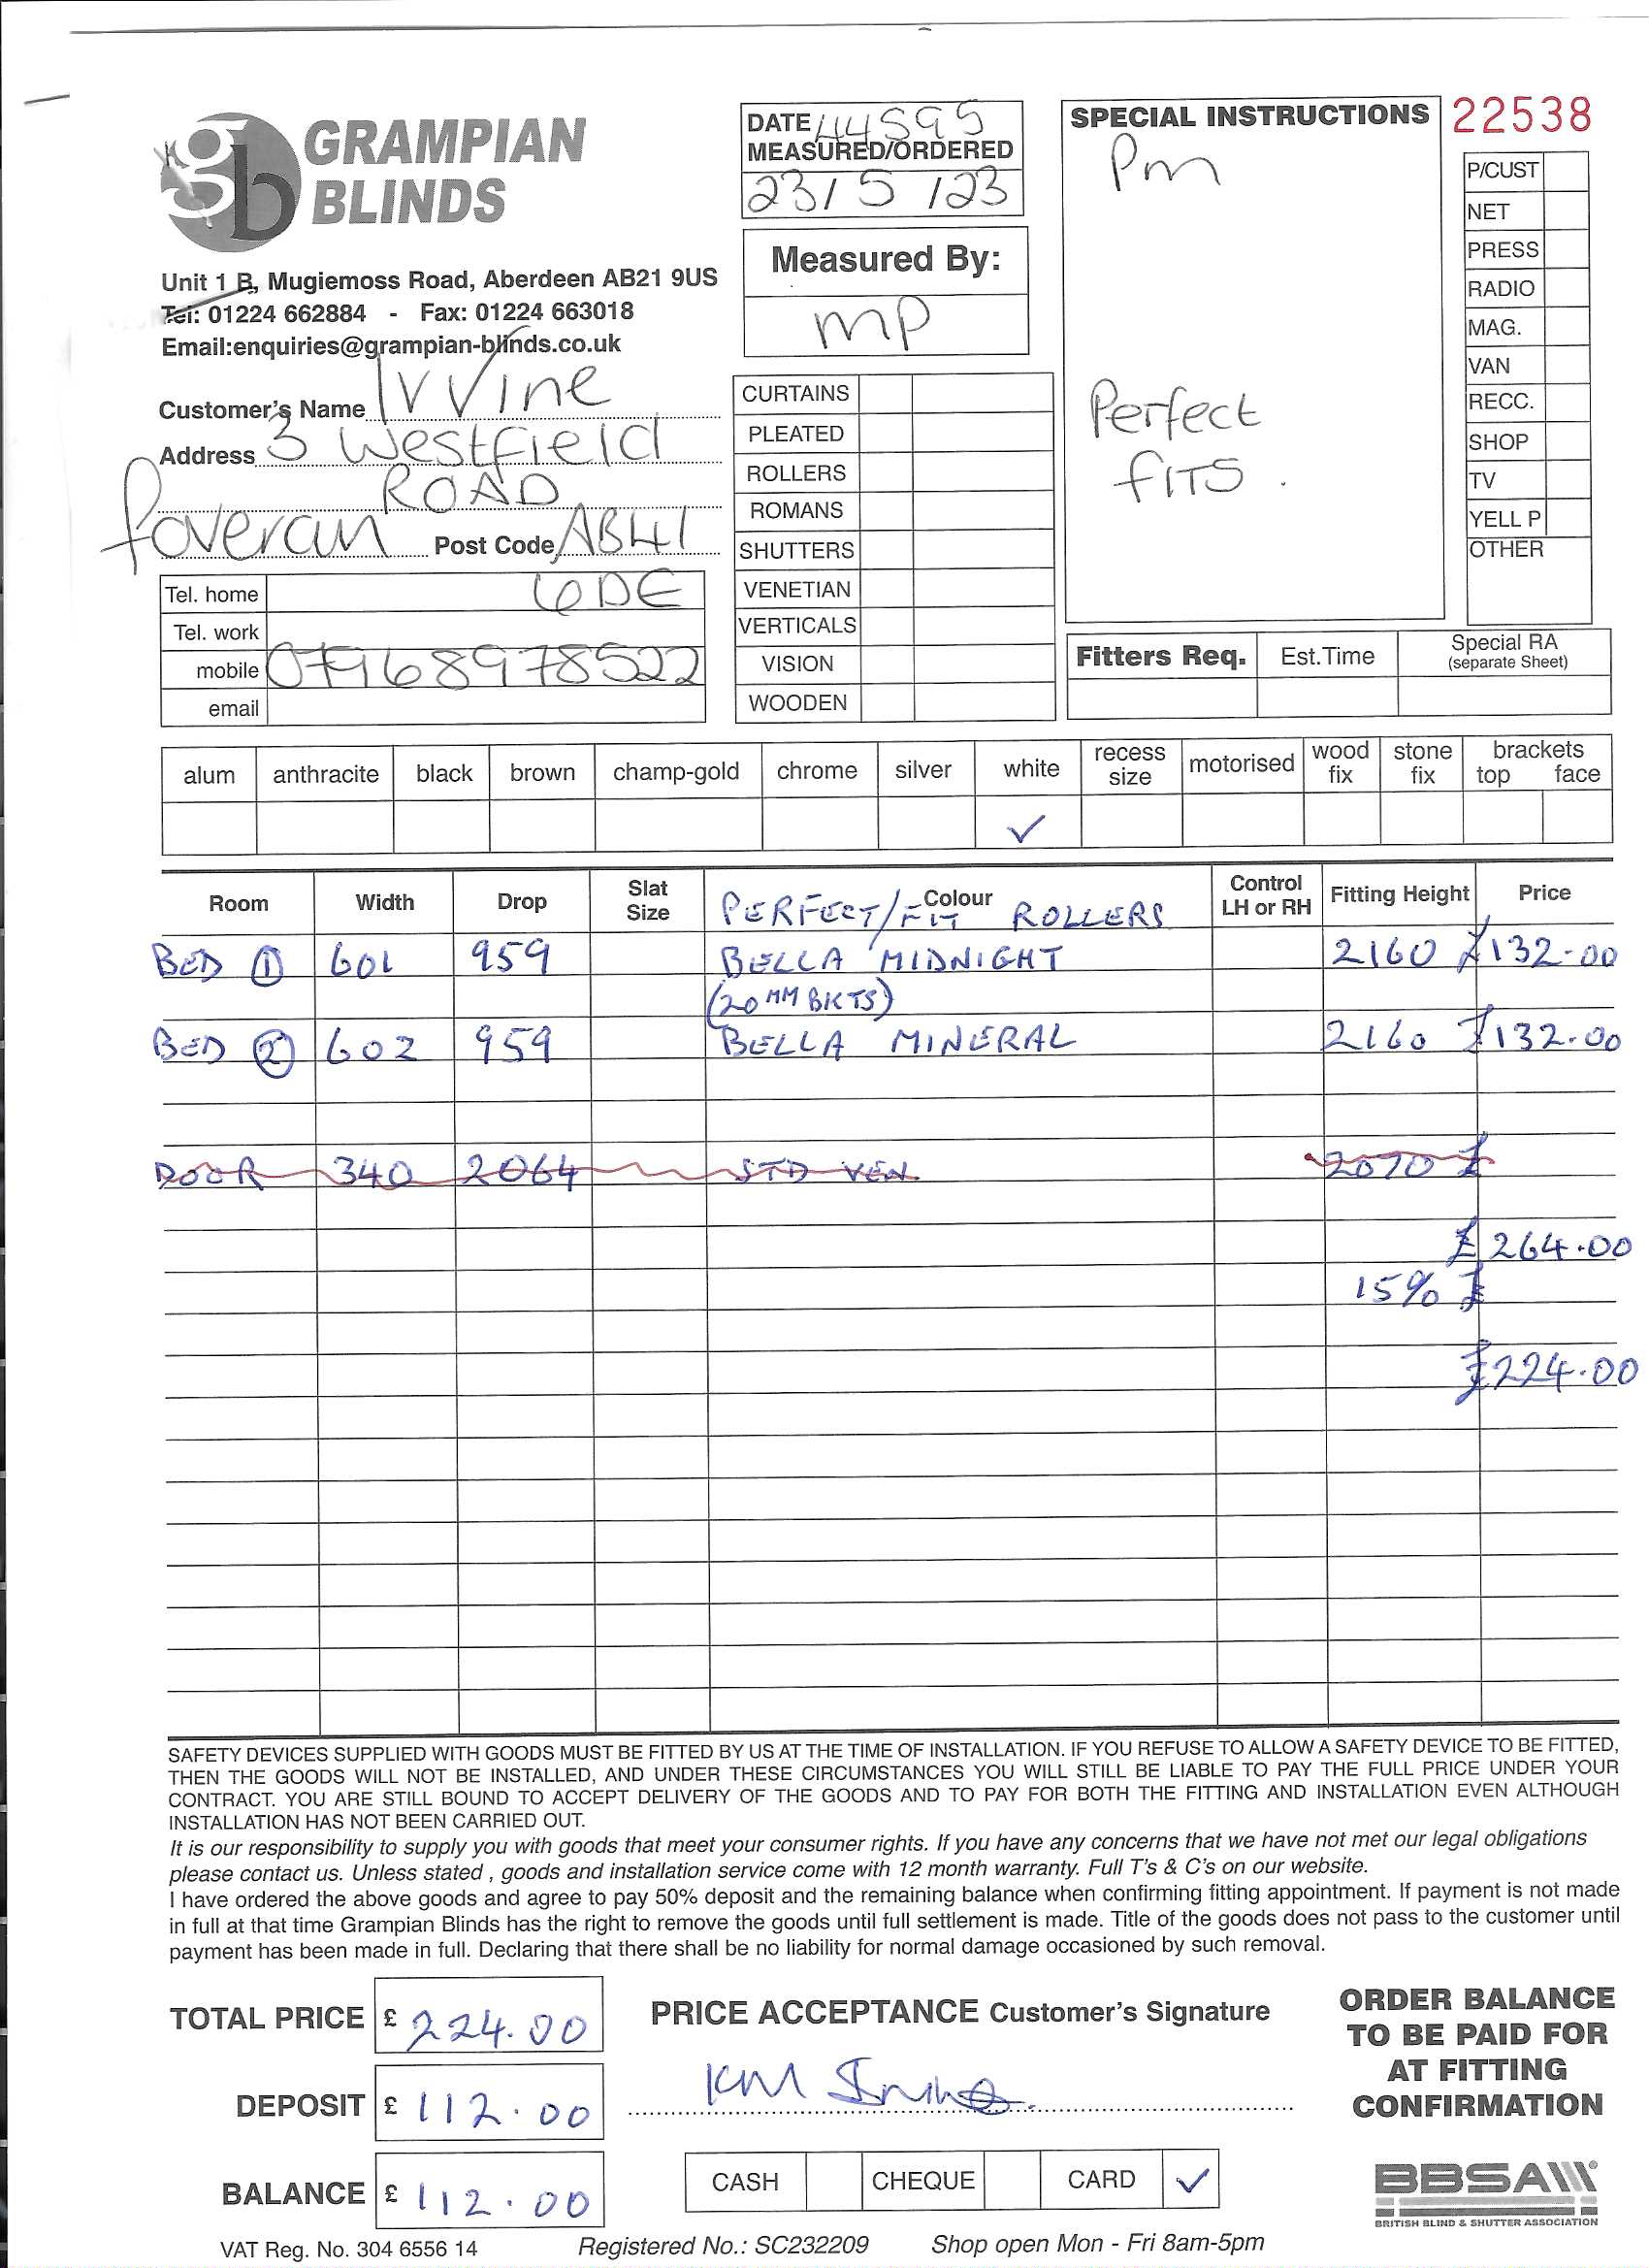 GRAMPIAN
BLINDS
Unit 1 B, Mugiemoss Road, Aberdeen AB21 9US
Tel: 01224 662884 - Fax: 01224 663018
Email:enquiries@grampian-blinds.co.uk
Customer's Name Irvine
Address 3 Westfield
ROAD
foveran Post Code AB41
6DE
Tel. home
Tel. work
mobile 07968978522
email
DATE 44595
MEASURED/ORDERED
23/5/23
Measured By:
MP
CURTAINS
PLEATED
ROLLERS
ROMANS
SHUTTERS
VENETIAN
VERTICALS
VISION
WOODEN
SPECIAL INSTRUCTIONS
Pm
Perfect
FITS.
22538
P/CUST
NET
PRESS
RADIO
MAG.
VAN
RECC.
SHOP
TV
YELL P
OTHER
Fitters Req. Est.Time Special RA
(separate Sheet)
alum anthracite black brown champ-gold chrome silver white recess size motorised wood fix stone fix brackets top face
✓
Room Width Drop Slat Size Colour Control LH or RH Fitting Height Price
PERFECT/FIT ROLLERS
BED 1 601 959 BELLA MIDNIGHT 2160 £132-00
(20MM BKTS)
BED 2 602 959 BELLA MINERAL 2160 £132.00
DOOR 340 2064 STD VEN 2070 £
£264.00
15% £
£224.00
SAFETY DEVICES SUPPLIED WITH GOODS MUST BE FITTED BY US AT THE TIME OF INSTALLATION. IF YOU REFUSE TO ALLOW A SAFETY DEVICE TO BE FITTED,
THEN THE GOODS WILL NOT BE INSTALLED, AND UNDER THESE CIRCUMSTANCES YOU WILL STILL BE LIABLE TO PAY THE FULL PRICE UNDER YOUR
CONTRACT. YOU ARE STILL BOUND TO ACCEPT DELIVERY OF THE GOODS AND TO PAY FOR BOTH THE FITTING AND INSTALLATION EVEN ALTHOUGH
INSTALLATION HAS NOT BEEN CARRIED OUT.
It is our responsibility to supply you with goods that meet your consumer rights. If you have any concerns that we have not met our legal obligations
please contact us. Unless stated , goods and installation service come with 12 month warranty. Full T's & C's on our website.
I have ordered the above goods and agree to pay 50% deposit and the remaining balance when confirming fitting appointment. If payment is not made
in full at that time Grampian Blinds has the right to remove the goods until full settlement is made. Title of the goods does not pass to the customer until
payment has been made in full. Declaring that there shall be no liability for normal damage occasioned by such removal.
TOTAL PRICE £ 224.00
DEPOSIT £ 112.00
BALANCE £ 112.00
PRICE ACCEPTANCE Customer's Signature
KM Irvine
CASH CHEQUE CARD ✓
ORDER BALANCE
TO BE PAID FOR
AT FITTING
CONFIRMATION
BBSA
BRITISH BLIND & SHUTTER ASSOCIATION
VAT Reg. No. 304 6556 14 Registered No.: SC232209 Shop open Mon - Fri 8am-5pm